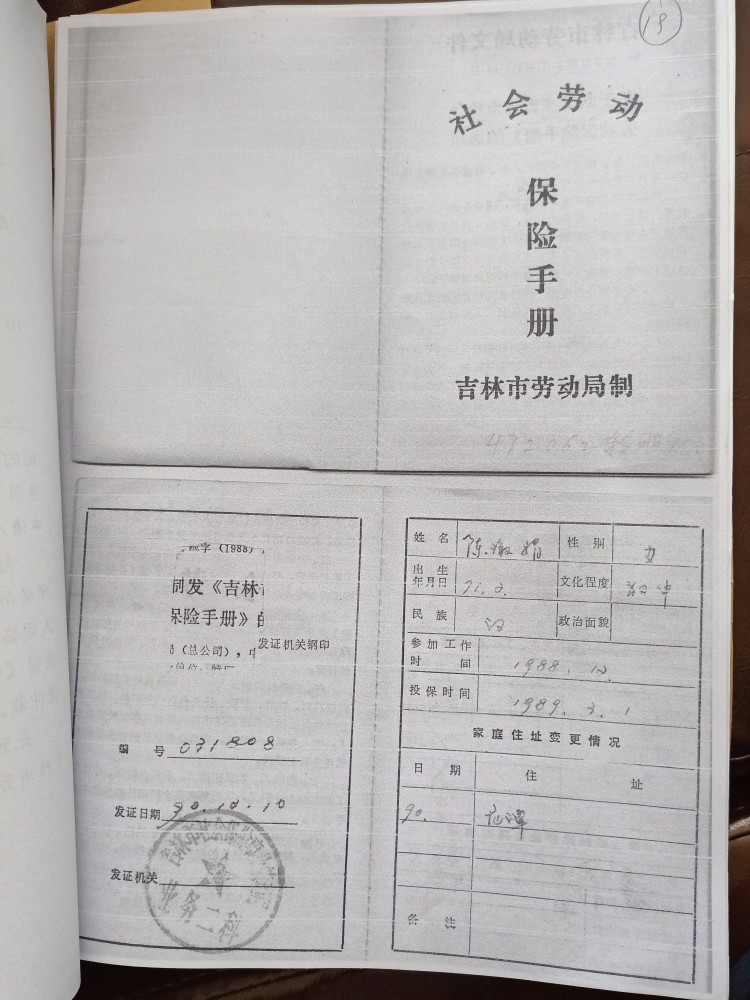 18
社会劳动
保险手册
吉林市劳动局制
字（1988）
制发《吉林
保险手册》的
（总公司），
发证机关钢印
编号 031808
发证日期 90.10.10
发证机关
业务二科
姓名 陈 娟 性别 女
出生年月日 71.3. 文化程度 初中
民族 汉 政治面貌
参加工作时间 1988.12.
投保时间 1989.3.1
家庭住址变更情况
日期 住址
90.
备注